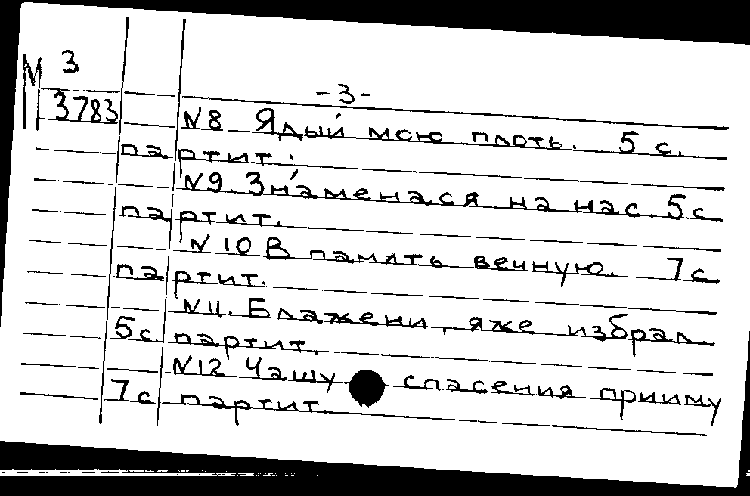 М 3
-3-
3783
№8 Ядый мою плоть. 5 с.
партит.
№9 Знаменася на нас 5с
партит.
№10 В память вечную. 7с
партит.
№11. Блажени, яже избрал
5с партит.
№12 Чашу спасения прииму
7с партит.